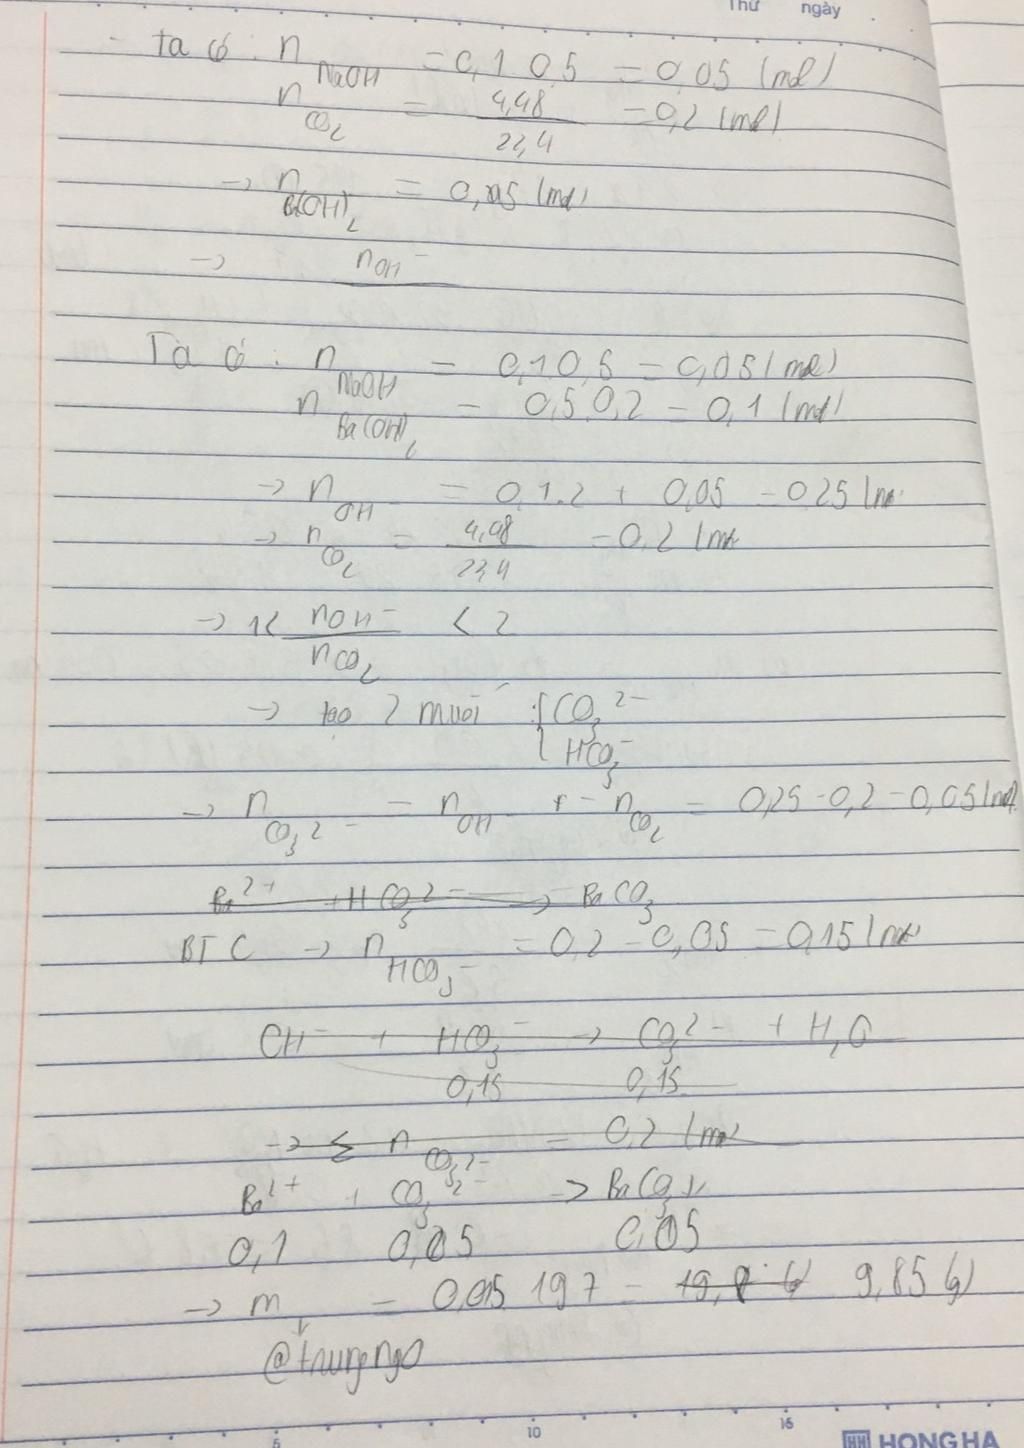 Thứ ngày
- Ta có : n NaOH = 0,1.0,5 = 0,05 (mol)
n CO2 = 4,48 / 22,4 = 0,2 (mol)
→ n Ba(OH)2 = 0,05 (mol)
→ nOH-
Ta có : n NaOH = 0,1.0,5 = 0,05 (mol)
n Ba(OH)2 = 0,5.0,2 = 0,1 (mol)
→ n OH- = 0,1.2 + 0,05 = 0,25 (mol
→ n CO2 = 4,48 / 22,4 = 0,2 (mol
→ 1 < nOH- / nCO2 < 2
→ tạo 2 muối : { CO3 2-
HCO3-
→ n CO3 2- = n OH- - n CO2 = 0,25 - 0,2 = 0,05 (mol)
Ba2+ + HCO3 2- → BaCO3
BTC → n HCO3- = 0,2 - 0,05 = 0,15 (mol
OH- + HCO3- → CO3 2- + H2O
0,15 0,15
→ Σ n CO3 2- = 0,2 (mol
Ba2+ + CO3 2- → BaCO3↓
0,1 0,05 0,05
→ m↓ = 0,05.197 = 9,85 (g)
@trungngo
5 10 15
HH HONG HA